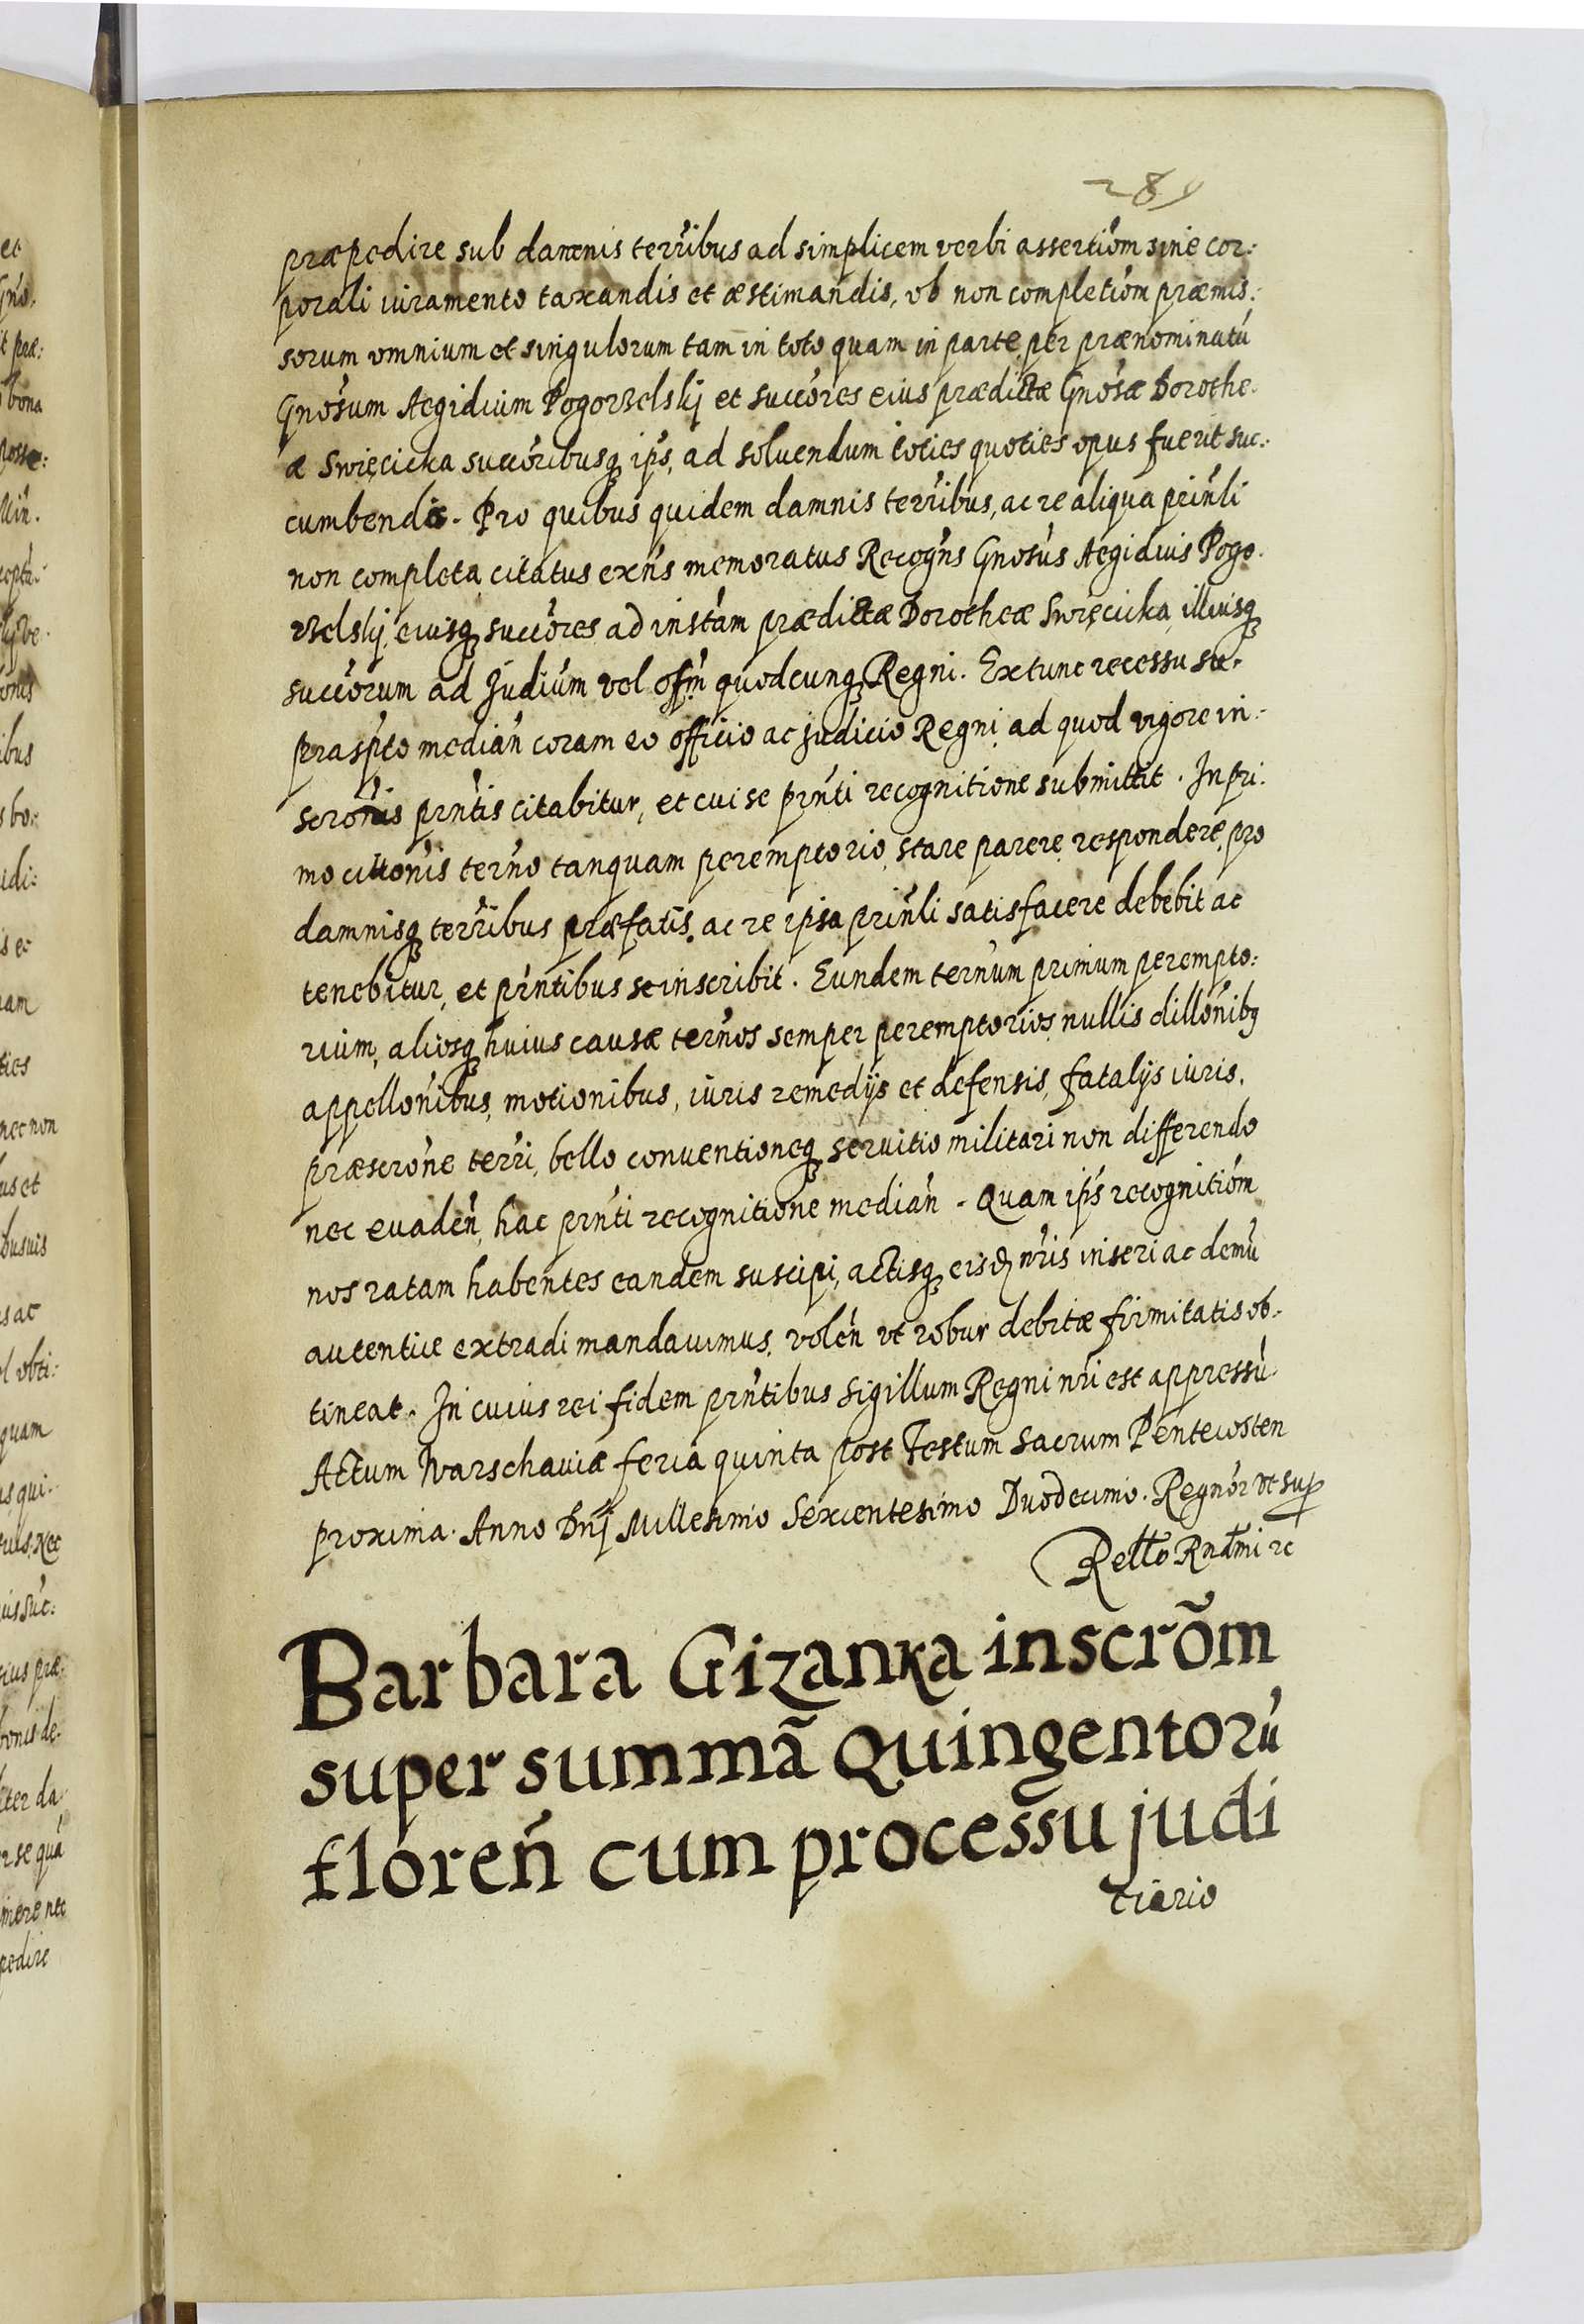 289
præpedire sub damnis terribus ad simplicem verbi assertiom sine cor:
porali iuramento taxandis et æstimandis, ob non completiom præmis:
sorum omnium et singulorum tam in toto quam in parte per prænominatu
Gnosum Aegidium Pogorzelskj et succores eius prædictæ Gnosæ Dorothe.
æ Swięcicka succoribusq ips, ad soluendum toties quoties opus fuerit suc:
cumbendis. Pro quibus quidem damnis terribus, ac re aliqua prinli
non completa citatus exns memoratus Recogns Gnosus Aegidius Pogo.
rzelskj, eiusq succores ad instam prædictæ Dorotheæ Swięcicka, illiusq
succorum ad Judium vel offm quodcunq Regni. Extunc recessu su.
praspto median coram eo officio ac judicio Regni, ad quod vigore in:
scronis prntis citabitur, et cui se prnti recognitione submittit. In pri:
mo cittonis terno tanquam peremptorio, stare parere respondere, pro
damnisq terribus præfatis, ac re ipsa prinli satisfacere debebit ac
tenebitur, et prntibus se inscribit. Eundem ternum primum perempto:
rium, aliosq huius causæ ternos semper peremptorios, nullis dillonibq
appellonibus, motionibus, iuris remedijs et defensis, fatalijs iuris,
præscrone terri, bello conventioneq servitio militari non differendo
nec evaden, hac prnti recognitione median. Quam ips recognitiom
nos ratam habentes eandem suscipi, actisq eisd nris inseri ac demu
autentice extradi mandavimus, volen vt robur debitæ firmitatis ob:
tineat. In cuius rei fidem prntibus Sigillum Regni nri est appressu.
Actum Warschaviæ feria quinta post Festum Sacrum Pentecosten
proxima. Anno Dnj Millesimo Sexcentesimo Duodecimo. Regnor vt sup
Retto Rndmi zc
Barbara Gizanka inscrõm
super summã Quingentorũ
floreñ cum processu judi
ciario